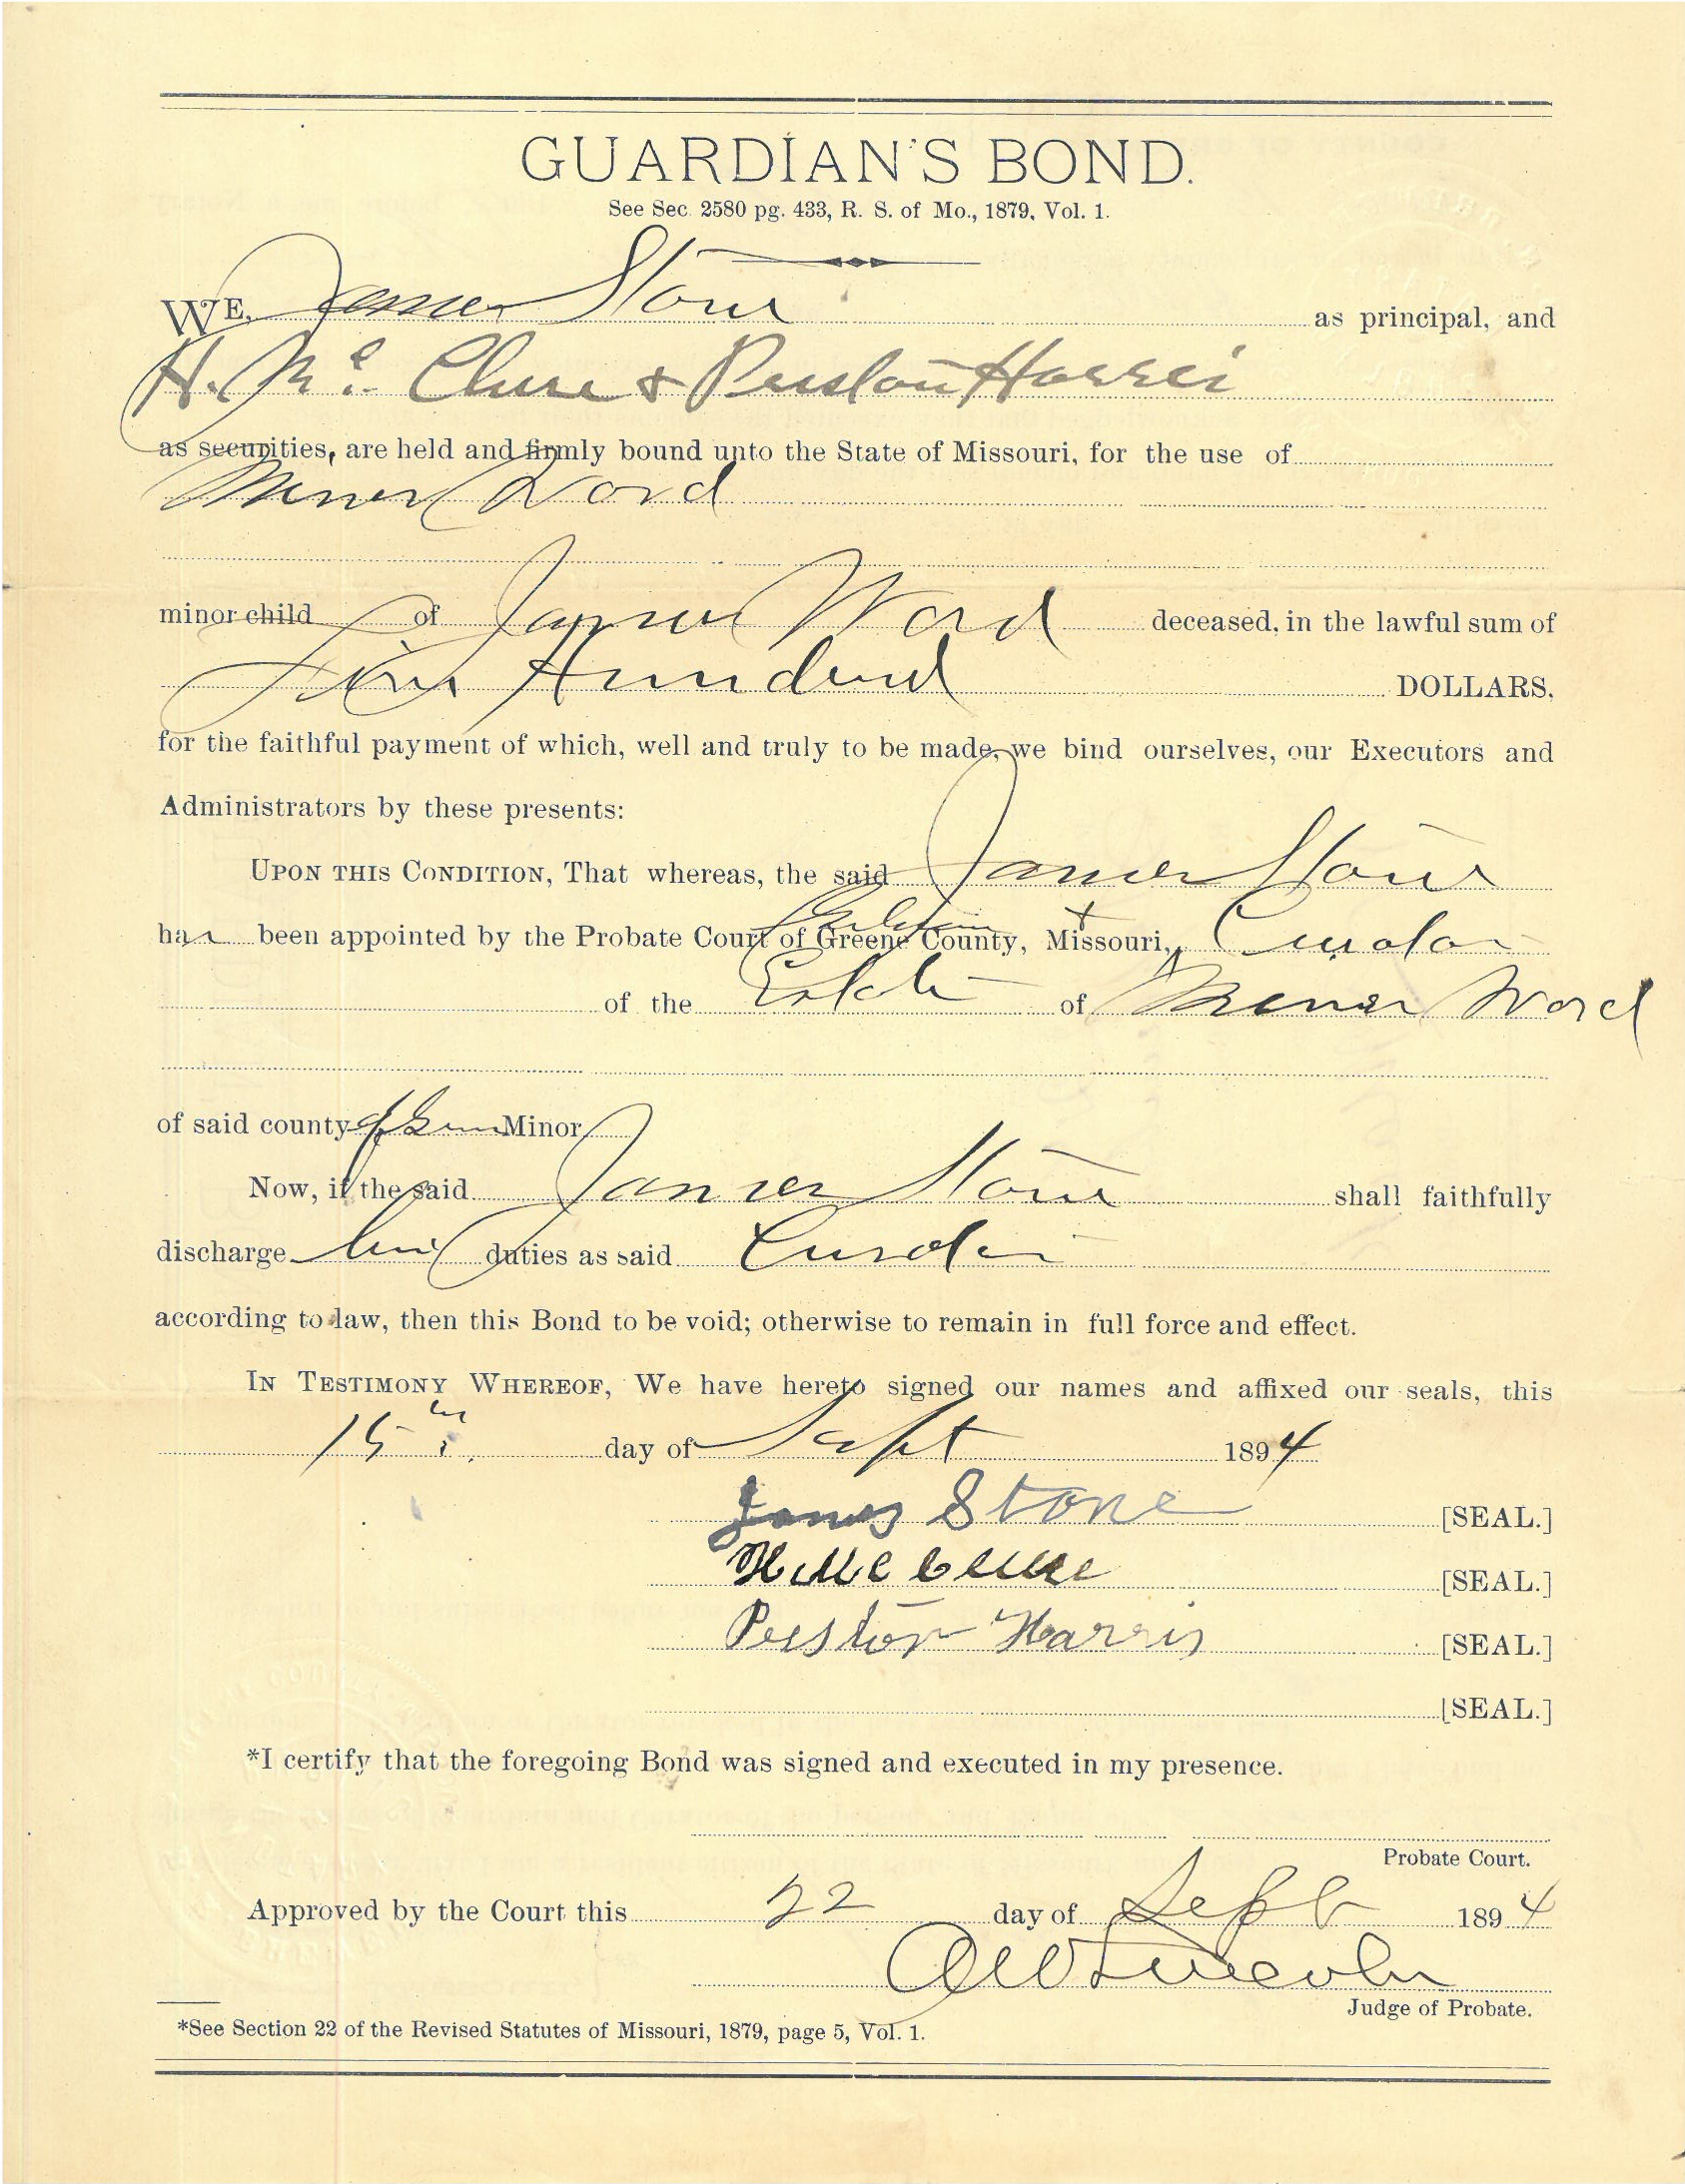 GUARDIAN'S BOND.
See Sec. 2580 pg. 433, R. S. of Mo., 1879, Vol. 1.
WE, James Stone as principal, and
H. Mc Clure & Preston Harris
as securities, are held and firmly bound unto the State of Missouri, for the use of
Miner Word
minor child of James Word deceased, in the lawful sum of
Hundred DOLLARS,
for the faithful payment of which, well and truly to be made, we bind ourselves, our Executors and
Administrators by these presents:
UPON THIS CONDITION, That whereas, the said James Stone
has been appointed by the Probate Court of Greene County, Missouri, Curator
of the Estate of Miner Word
of said county of Minor
Now, if the said James Stone shall faithfully
discharge his duties as said Curator
according to law, then this Bond to be void; otherwise to remain in full force and effect.
IN TESTIMONY WHEREOF, We have hereto signed our names and affixed our seals, this
15th day of Sept 1894
James Stone [SEAL.]
H Mc Clure [SEAL.]
Preston Harris [SEAL.]
[SEAL.]
*I certify that the foregoing Bond was signed and executed in my presence.
Probate Court.
Approved by the Court this 22 day of Sept 1894
A W Lincoln
Judge of Probate.
*See Section 22 of the Revised Statutes of Missouri, 1879, page 5, Vol. 1.